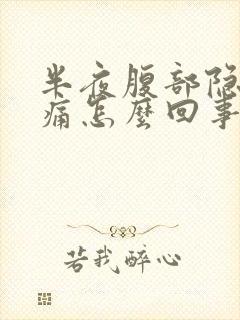 半夜腹部隐
痛怎麼回事
若我醉心